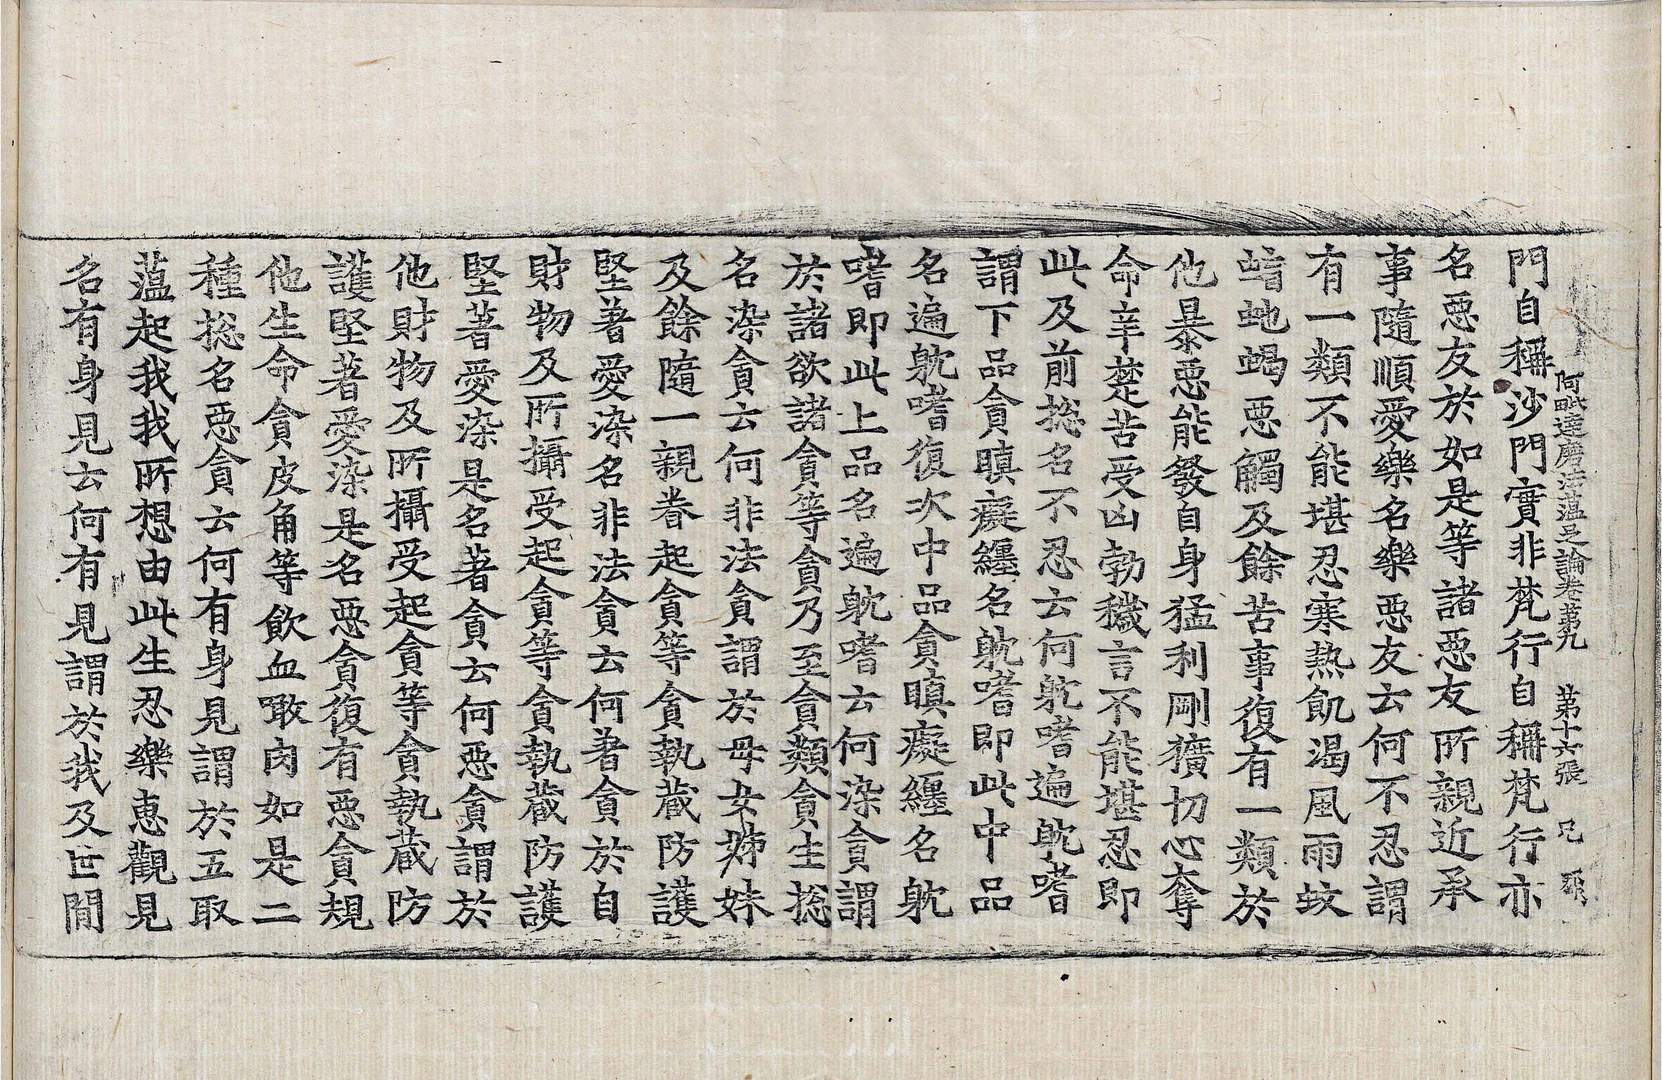 阿毗達磨法蘊足論卷第九 第十六張 兄
門自稱沙門實非梵行自稱梵行亦
名惡友於如是等諸惡友所親近承
事隨順愛樂名樂惡友云何不忍謂
有一類不能堪忍寒熱飢渴風雨蚊
蝱虵蝎惡觸及餘苦事復有一類於
他暴惡能發自身猛利剛獷切心奪
命辛楚苦受凶勃穢言不能堪忍即
此及前揔名不忍云何躭嗜遍躭嗜
謂下品貪瞋癡纏名躭嗜即此中品
名遍躭嗜復次中品貪瞋癡纏名躭
嗜即此上品名遍躭嗜云何染貪謂
於諸欲諸貪等貪乃至貪類貪生揔
名染貪云何非法貪謂於母女姊妹
及餘隨一親眷起貪等貪執藏防護
堅著愛染名非法貪云何著貪於自
財物及所攝受起貪等貪執藏防護
堅著愛染是名著貪云何惡貪謂於
他財物及所攝受起貪等貪執藏防
護堅著愛染是名惡貪復有惡貪規
他生命貪皮角等飲血噉肉如是二
種揔名惡貪云何有身見謂於五取
蘊起我我所想由此生忍樂惠觀見
名有身見云何有見謂於我及世閒